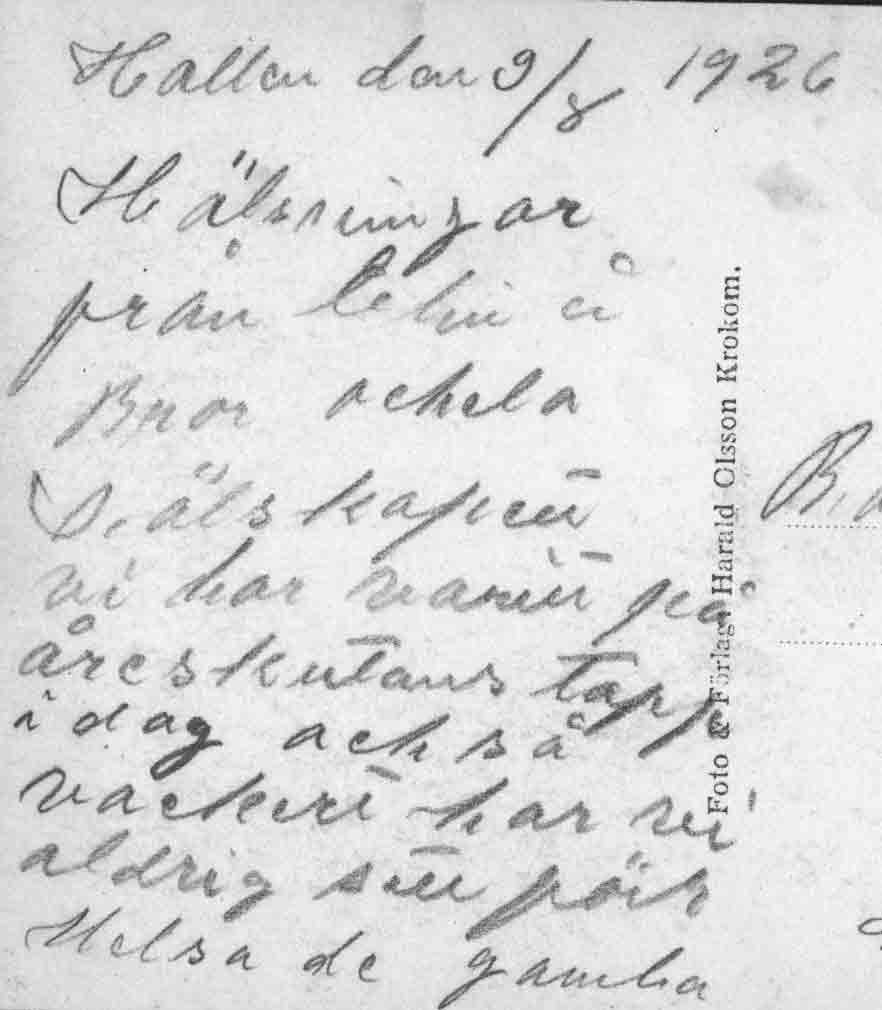 Hallen den 9/8 1926
Hälsningar
från å
Bror ochela
Sälskapett
vi har varitt på
åreskutans topp
i dag och så
vackert har vi
aldrig sett förr
Helsa de gamla
Foto & Förlag: Harald Olsson Krokom.